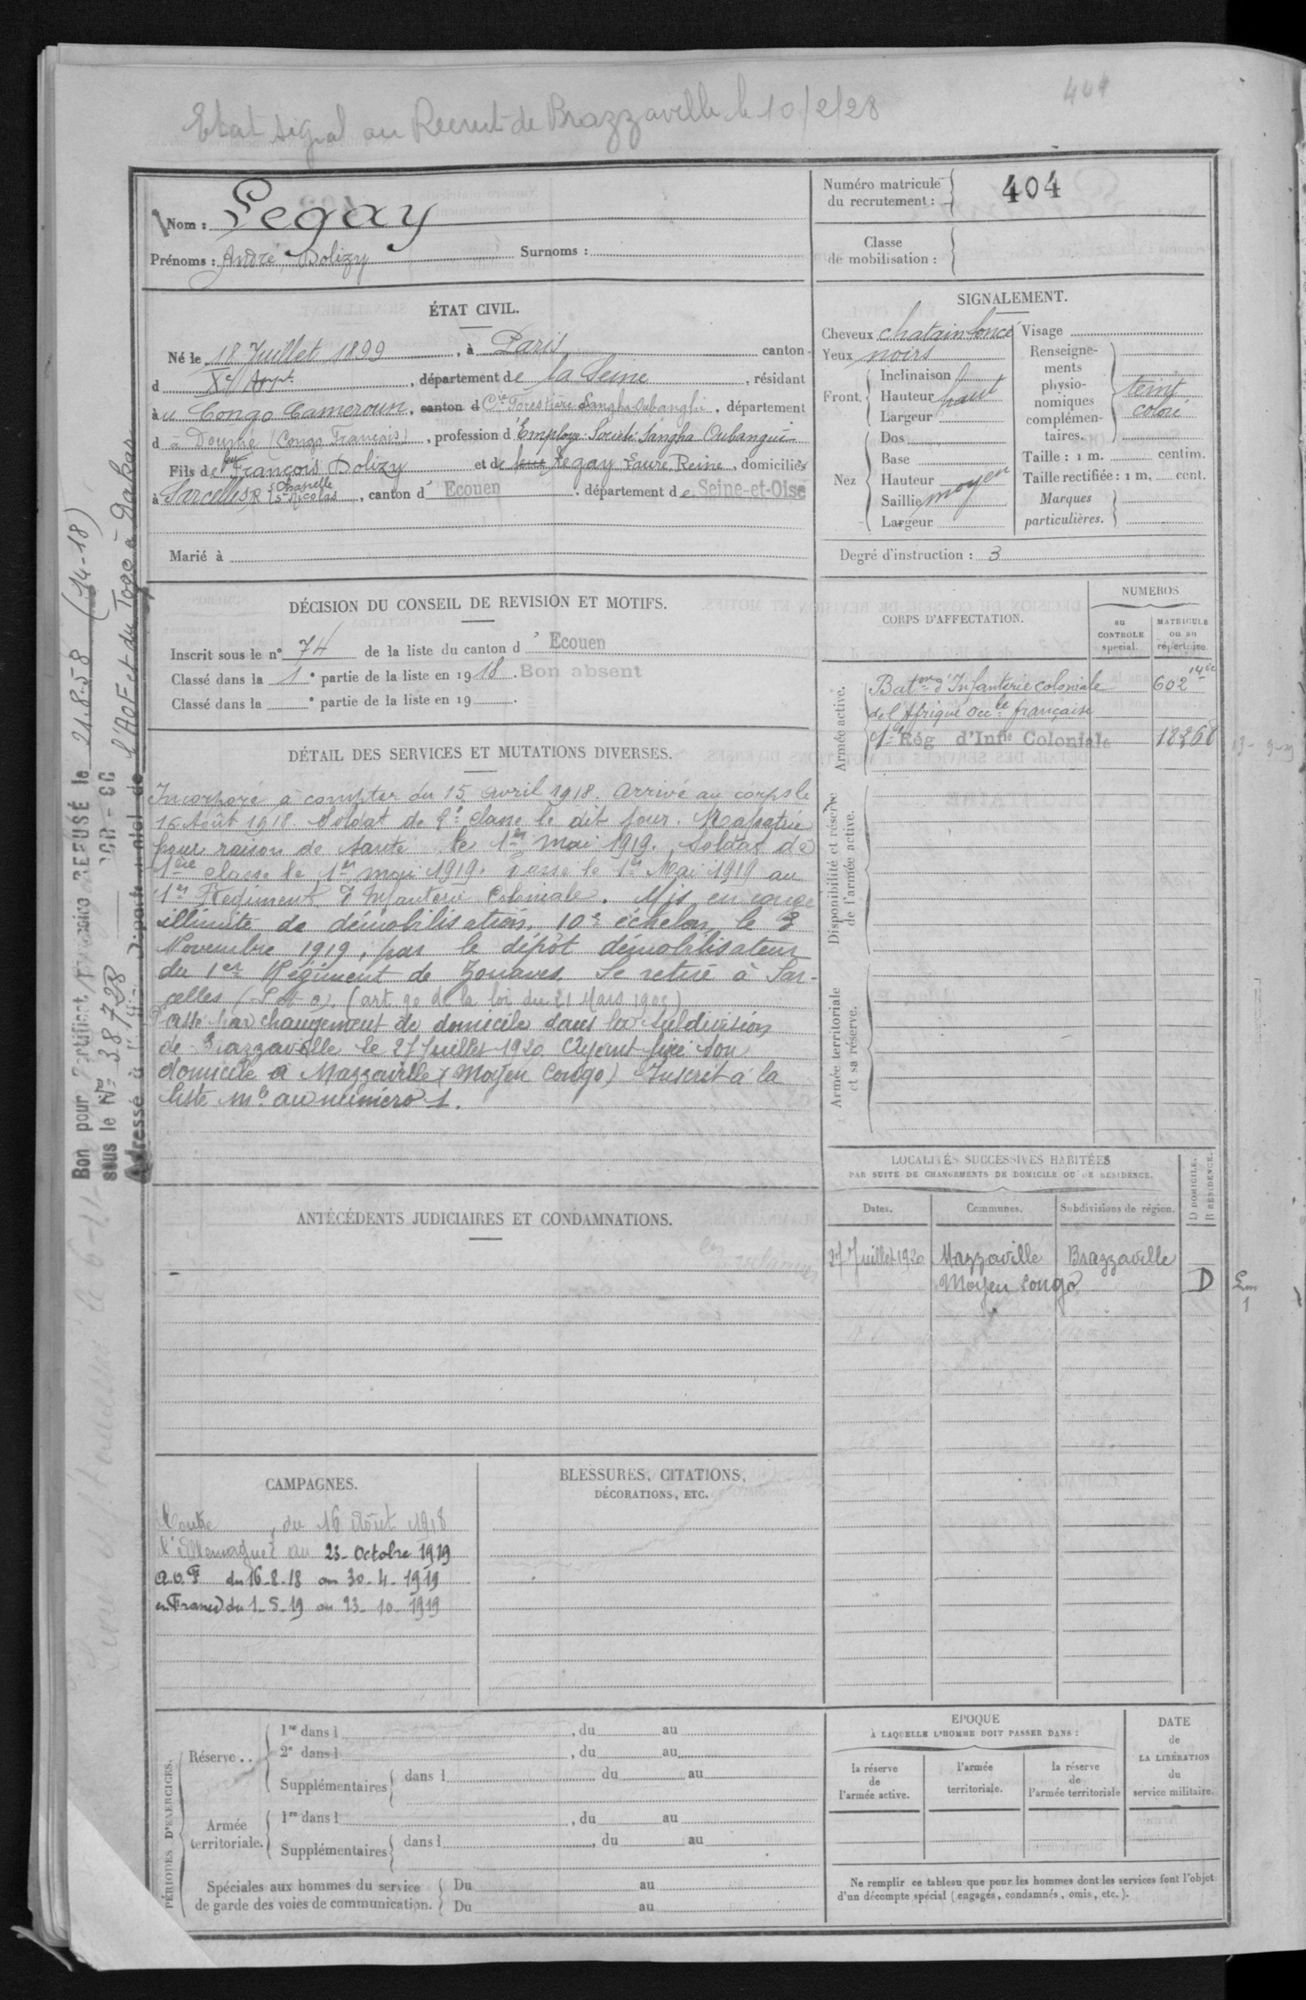 Etat signal au Recrut de Brazzaville le 10/2/28
404
Nom : Legay
Prénoms : André, Dolizy Surnoms :
Numéro matricule du recrutement : 404
Classe de mobilisation :
ÉTAT CIVIL.
Né le 18 Juillet 1899, à Paris canton
d Xe Arrt, département de la Seine, résidant
au Congo Cameroun, canton d Cie Forestière Sangha Oubanghi, département
d à Doumé (Congo Français), profession d'Employé Société Sangha Oubangui
Fils de feu François Dolizy et de feue Legay Laure Reine, domiciliés
à Sarcelles R Chapelle St Nicolas, canton d' Ecouen, département de Seine-et-Oise
Marié à
SIGNALEMENT.
Cheveux chatain foncé
Yeux noirs
Front. Inclinaison
Hauteur haut
Largeur
Nez Dos
Base
Hauteur
Saillie moyen
Largeur
Visage
Renseignements physionomiques complémentaires. teint coloré
Taille : 1 m. centim.
Taille rectifiée : 1 m, cent.
Marques particulières.
Degré d'instruction : 3
DÉCISION DU CONSEIL DE REVISION ET MOTIFS.
Inscrit sous le n° 74 de la liste du canton d' Ecouen
Classé dans la 1e partie de la liste en 1918. Bon absent
Classé dans la e partie de la liste en 19 .
CORPS D'AFFECTATION.
NUMEROS
au CONTROLE spécial.
MATRICULE ou au répertoire.
Armée active.
Baton d'Infanterie coloniale 602
de l'Afrique Occle française
1er Rég d'Infie Coloniale 12268
Disponibilité et réserve de l'armée active.
Armée territoriale et sa réserve.
DÉTAIL DES SERVICES ET MUTATIONS DIVERSES.
Incorporé à compter du 15 avril 1918. Arrivé au corps le
16 Août 1918. Soldat de 2e classe le dit jour. Rapatrié
pour raison de santé le 1er mai 1919. Soldat de
1ère classe le 1er mai 1919. Passé le 1er Mai 1919 au
1er Régiment d'Infanterie Coloniale. Mis en congé
illimité de démobilisation, 10e échelon, le 3
Novembre 1919, par le dépôt démobilisateur
du 1er Régiment de Zouaves. Se retire à Sar-
celles (S et O). (art 90 de la loi du 21 Mars 1905)
Passé par changement de domicile dans la subdivision
de Brazzaville le 27 Juillet 1920 Ayant fixé son
domicile à Mazzaville (Moyen Congo) Inscrit à la
liste me au numéro 1.
Bon pour Certificat REFUSÉ le 21.8.58 (14-18)
sous le N° 38728
Adressé à l'AOF et du Togo à Dakar
ANTÉCÉDENTS JUDICIAIRES ET CONDAMNATIONS.
LOCALITÉS SUCCESSIVES HABITÉES
PAR SUITE DE CHANGEMENTS DE DOMICILE OU DE RESIDENCE.
Dates. Communes. Subdivisions de région. D DOMICILE. R RESIDENCE.
27 Juillet 1920 Mazzaville Brazzaville
Moyen Congo D
CAMPAGNES.
Contre, du 16 Août 1918
l'Allemagne au 23 Octobre 1919
A.O.F du 16-8-18 au 30-4-1919
en France du 1-5-19 au 23-10-1919
BLESSURES, CITATIONS,
DÉCORATIONS, ETC.
PÉRIODES D'EXERCICES.
Réserve..
1re dans l , du au
2e dans l , du au
Supplémentaires dans l du au
Armée territoriale.
1re dans l , du au
Supplémentaires dans l , du au
Spéciales aux hommes du service de garde des voies de communication.
Du au
Du au
EPOQUE
À LAQUELLE L'HOMME DOIT PASSER DANS :
la réserve de l'armée active.
l'armée territoriale.
la réserve de l'armée territoriale
DATE de LA LIBÉRATION du service militaire.
Ne remplir ce tableau que pour les hommes dont les services font l'objet
d'un décompte spécial (engagés, condamnés, omis, etc.).